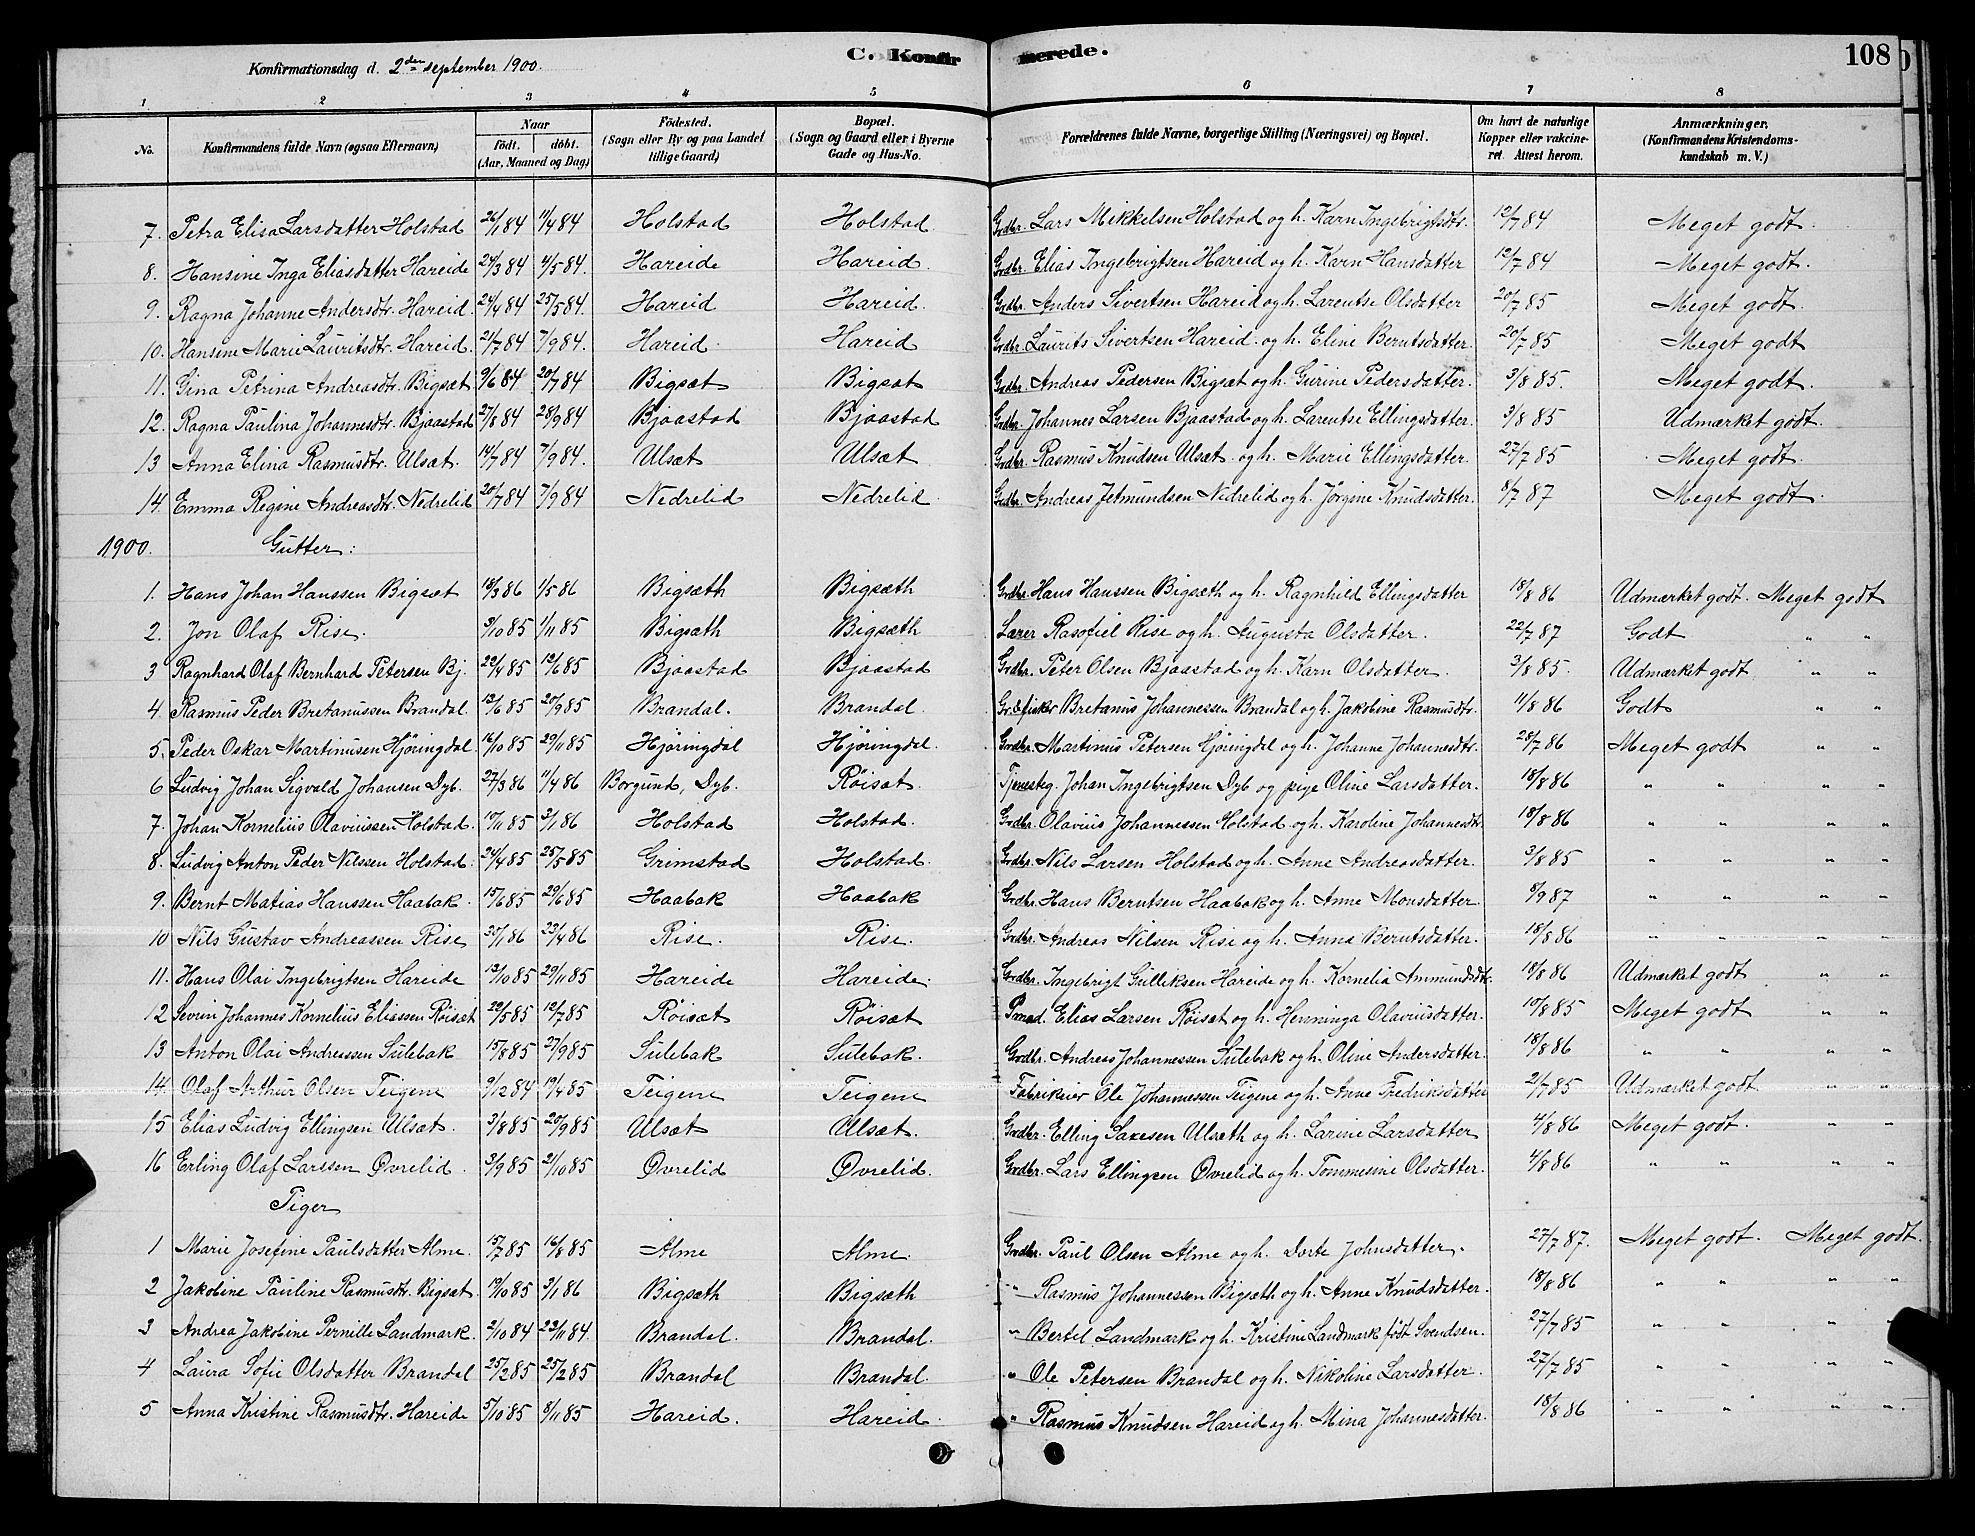 C. Konfirmerede.
108
Konfirmationsdag d. 2den september 1900.
1 2 3 4 5 6 7 8
No. Konfirmandens fulde Navn (ogsaa Efternavn) Naar født. døbt. (Aar, Maaned og Dag) Fødested. (Sogn eller By og paa Landet tillige Gaard) Bopæl. (Sogn og Gaard eller i Byerne Gade og Hus-No. Forældrenes fulde Navne, borgerlige Stilling (Næringsvei) og Bopæl. Om havt de naturlige Kopper eller vakcineret. Attest herom. Anmærkninger. (Konfirmandens Kristendomskundskab m. V.)
7. Petra Elisa Larsdatter Holstad 26/1 84 11/4 84 Holstad Holstad Grdbr. Lars Mikkelsen Holstad og h. Karn Ingebrigtsdtr. 12/7 84 Meget godt.
8. Hansine Inga Eliasdatter Hareide 24/3 84 4/5 84. Hareide Hareid. Grdbr. Elias Ingebrigtsen Hareid og h. Karn Hansdatter 12/7 84 Meget godt.
9. Ragna Johanne Andersdtr. Hareid. 24/4 84 25/5 84. Hareid Hareid. Grdbr. Anders Sivertsen Hareid og h. Larentse Olsdatter 20/7 85 Meget godt.
10. Hansine Marie Lauritsdtr. Hareid. 21/7 84 7/9 84. Hareid. Hareid Grdbr. Laurits Sivertsen Hareid og h. Eline Berntsdatter. 20/7 85 Meget godt
11. Gina Petrina Andreasdtr. Bigsæt 9/6 84 20/7 84 Bigsæt Bigsæt Grdbr. Andreas Pedersen Bigsæt og h. Gurine Pedersdatter. 3/8 85. Meget godt.
12. Ragna Paulina Johannesdtr. Bjaastad 27/8 84 28/9 84 Bjaastad Bjaastad Grdbr. Johannes Larsen Bjaastad og h. Larentse Ellingsdatter. 3/8 85 Udmærket godt.
13 Anna Elina Rasmusdtr. Ulsæt. 14/7 84 7/9 84. Ulsæt Ulsæt. Grdbr. Rasmus Knudsen Ulsæt og h. Marie Ellingsdatter. 27/7 85 Meget godt.
14. Emma Regine Andreasdtr. Nedrelid 20/7 84 7/9 84 Nedrelid Nedrelid. Grdbr. Andreas Jetmundsen Nedrelid og h. Jørgine Knudsdatter. 8/7 87 Meget godt.
1900. Gutter:
1. Hans Johan Hanssen Bigsæt 18/3 86 1/5 86 Bigsæth Bigsæth Grdbr. Hans Hanssen Bigsæth og h. Ragnhild Ellingsdatter 18/8 86 Udmærket godt. Meget godt
2. Jon Olaf Rise. 9/10 85 1/11 85 Bigsæth Bigsæth Lærer Rasofiel Rise og h. Augusta Olsdatter. 22/7 87 Godt " "
3 Ragnhard Olaf Bernhard Petersen Bj. 22/4 85 12/6 85 Bjaastad Bjaastad Grdbr. Peter Olsen Bjaastad og h. Karn Olsdatter. 3/8 85. Udmærket godt " "
4. Rasmus Peder Bretanussen Brandal. 13/6 85 20/9 85 Brandal. Brandal Bretanus Johannessen Brandal og h. Jakobine Rasmusdtr. 11/8 86 Godt " "
5. Peder Oskar Martinusen Hjøringdal 16/10 85 29/11 85 Hjøringdal Hjøringdal. Grdbr. Martinus Petersen Hjøringdal og h. Johanne Johannesdtr. 28/7 86 Meget godt " "
6 Ludvig Johan Sigvald Johansen Dyb. 27/3 86 11/4 86 Borgund, Dyb. Røisæt. Tjenesteg. Johan Ingebrigtsen Dyb og pige Oline Larsdatter. 18/8 86 " " " "
7. Johan Kornelius Olaviussen Holstad. 10/11 85 3/1 86 Holstad Holstad. Grdbr. Olavius Johannessen Holstad og h. Karoline Johannesdtr. 18/8 86 " " " "
8. Ludvig Anton Peder Nilssen Holstad. 24/4 85 25/5 85 Grimstad Holstad. Grdbr. Nils Larsen Holstad og h. Anne Andreasdatter. 3/8 85 " " " "
9. Bernt Matias Hanssen Haabak. 15/6 85 29/6 85 Haabak Haabak Grdbr. Hans Berntsen Haabak og h. Anne Monsdatter. 8/9 87 " " " "
10 Nils Gustav Andreassen Rise 30/1 86 23/4 86 Rise. Rise. Grdbr. Andreas Nilsen Rise og h. Anna Berntsdatter. 18/8 86 " " " "
11. Hans Olai Ingebrigtsen Hareide 13/10 85 29/11 85 Hareide Hareide. Grdbr. Ingebrigt Gulliksen Hareide og h. Kornelia Ammundsdtr. 18/8 86 Udmærket godt " "
12 Sevrin Johannes Kornelius Eliassen Røisæt 22/5 85 12/7 85 Røisæt Røisæt Elias Larsen Røisæt og h. Henninga Olaviusdatter. 10/8 85 Meget godt " "
13 Anton Olai Andreassen Sulebak 15/8 85 27/9 85 Sulebak Sulebak. Grdbr. Andreas Johannessen Sulebak og h. Oline Andersdatter. 18/8 86 " " " "
14. Olaf Arthur Olsen Teigene 9/12 84 19/4 85 Teigene Teigene Fabrikeier Ole Johannessen Teigene og h. Anne Fredriksdatter 21/7 85 Udmærket godt " "
15 Elias Ludvig Ellingsen Ulsæt. 3/8 85 20/9 85 Ulsæt Ulsæt. Grdbr. Elling Saxesen Ulsæth og h. Larine Larsdatter 4/8 86 Meget godt. " "
16 Erling Olaf Larssen Øvrelid. 3/9 85 21/10 85 Øvrelid Øvrelid. Grdbr. Lars Ellingsen Øvrelid og h. Tommesine Olsdatter. 4/8 86 " " " "
Piger
1 Marie Josefine Paulsdatter Alme. 15/7 85 16/8 85 Alme Alme. Grdbr. Paul Olsen Alme og h. Dorte Johnsdatter. 27/7 87. Meget godt. Meget godt.
2 Jakobine Pauline Rasmusdtr. Bigsæt. 19/10 85 3/1 86 Bigsæth Bigsæth " Rasmus Johannessen Bigsæth og h. Anne Knudsdatter. 18/8 86 " " " "
3 Andrea Jakobine Pernille Landmark. 2/10 84 23/11 84. Brandal. Brandal. " Bertel Landmark og h. Kristine Landmark født Svendsen. 27/7 85 " " " "
4 Laura Sofie Olsdatter Brandal 25/2 85 25/2 85 Brandal Brandal. " Ole Petersen Brandal og h. Nikoline Larsdatter. 27/7 85 " " " "
5 Anna Kristine Rasmusdtr. Hareide 5/10 85 8/11 85 Hareid. Hareid. " Rasmus Knudsen Hareid og h. Mina Johannesdatter. 18/8 86 " " " "